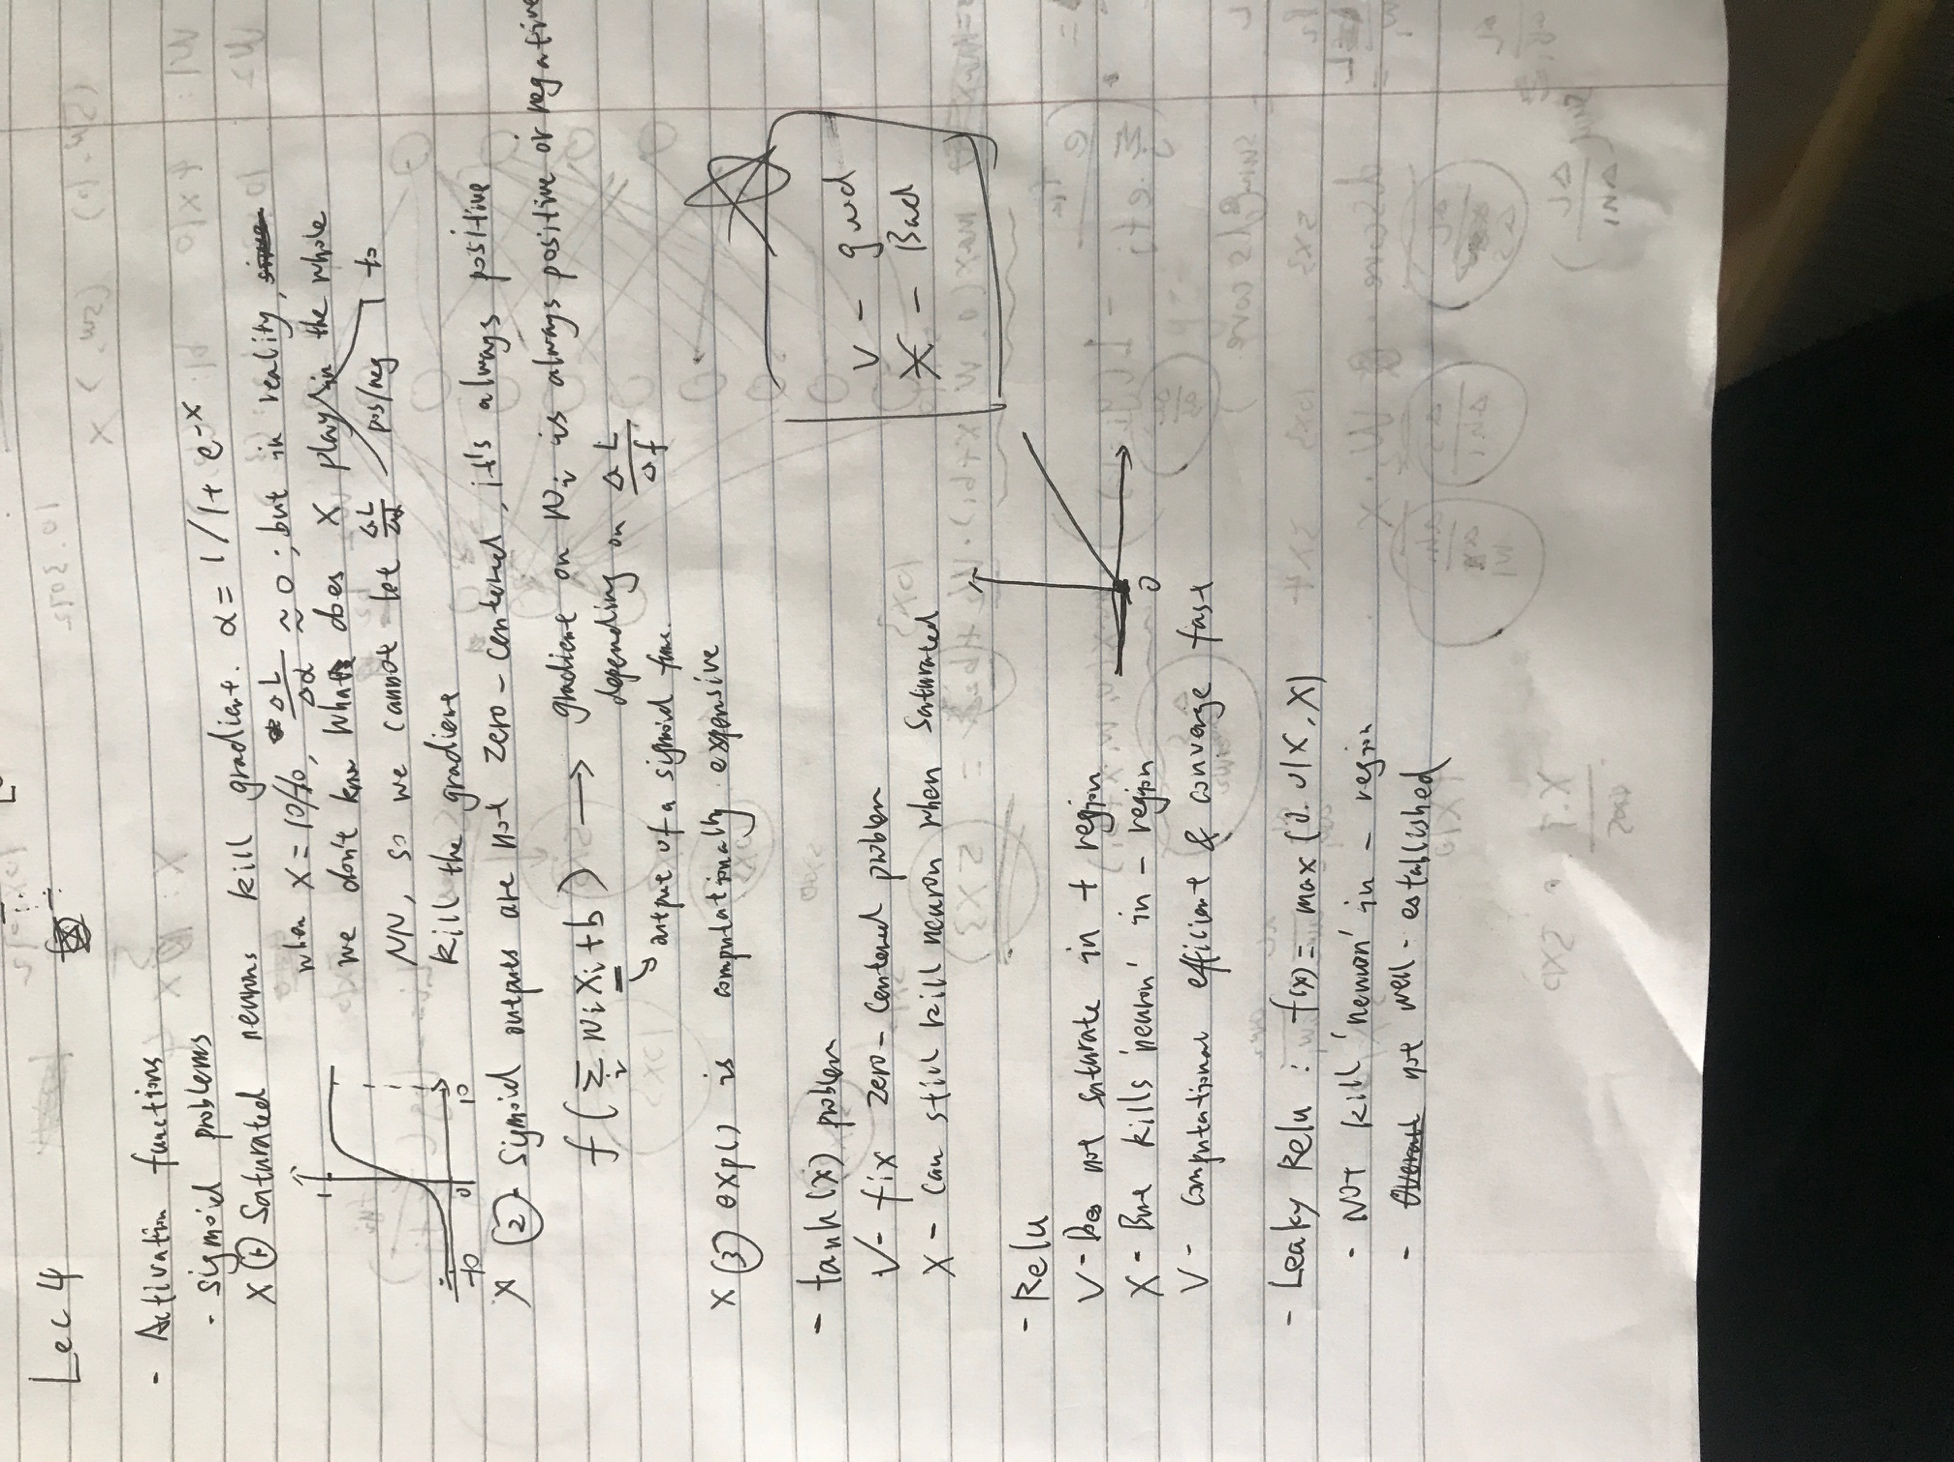 Lec 4
- Activation functions
- sigmoid problems
X ① Saturated neurons kill gradient. α = 1/1+e-x
when X = 10/-10, ΔL/Δα ≈ 0; but in reality,
we don't know what does X play in the whole
NN, so we cannot let ΔL/Δα pos/neg to
kill the gradient
1
-10 0 10
X ②- Sigmoid outputs are not zero-centered, it's always positive
f(Σi wi xi + b) → gradient on wi is always positive or negative
depending on ΔL/Δf
output of a sigmoid func.
X ③ exp() is computationally expensive
V - good
X - Bad
- tanh(x) problem
V- fix zero-centered problem
X - Can still kill neuron when saturated
- Relu
V - Does not saturate in + region
X - But kills 'neuron' in - region
V - Computational efficient & converge fast
0
- Leaky Relu : f(x) = max(0.01x, x)
- Not kill 'neuron' in - region
- not well-established